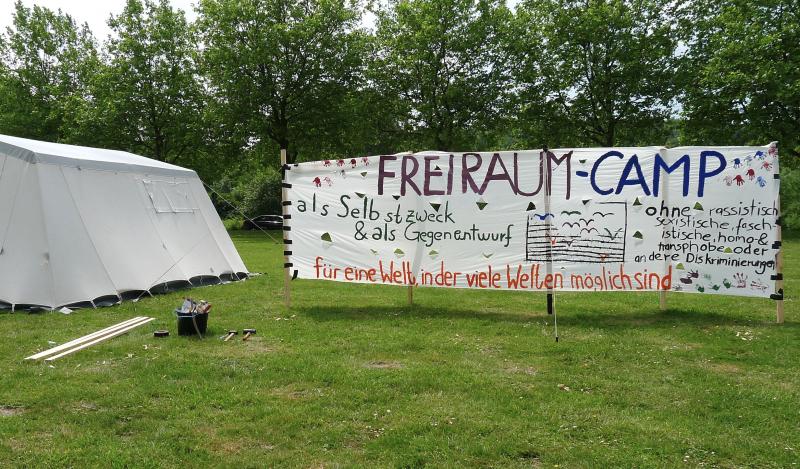 FREIRAUM-CAMP
als Selbstzweck
& als Gegenentwurf
ohne rassistisch
sexistische, fasch
istische, homo- &
transphobe oder
andere Diskriminierungen
für eine Welt, in der viele Welten möglich sind